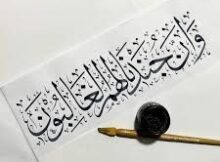 وَإِنَّ جُنْدَنَا لَهُمُ الْغَالِبُونَ